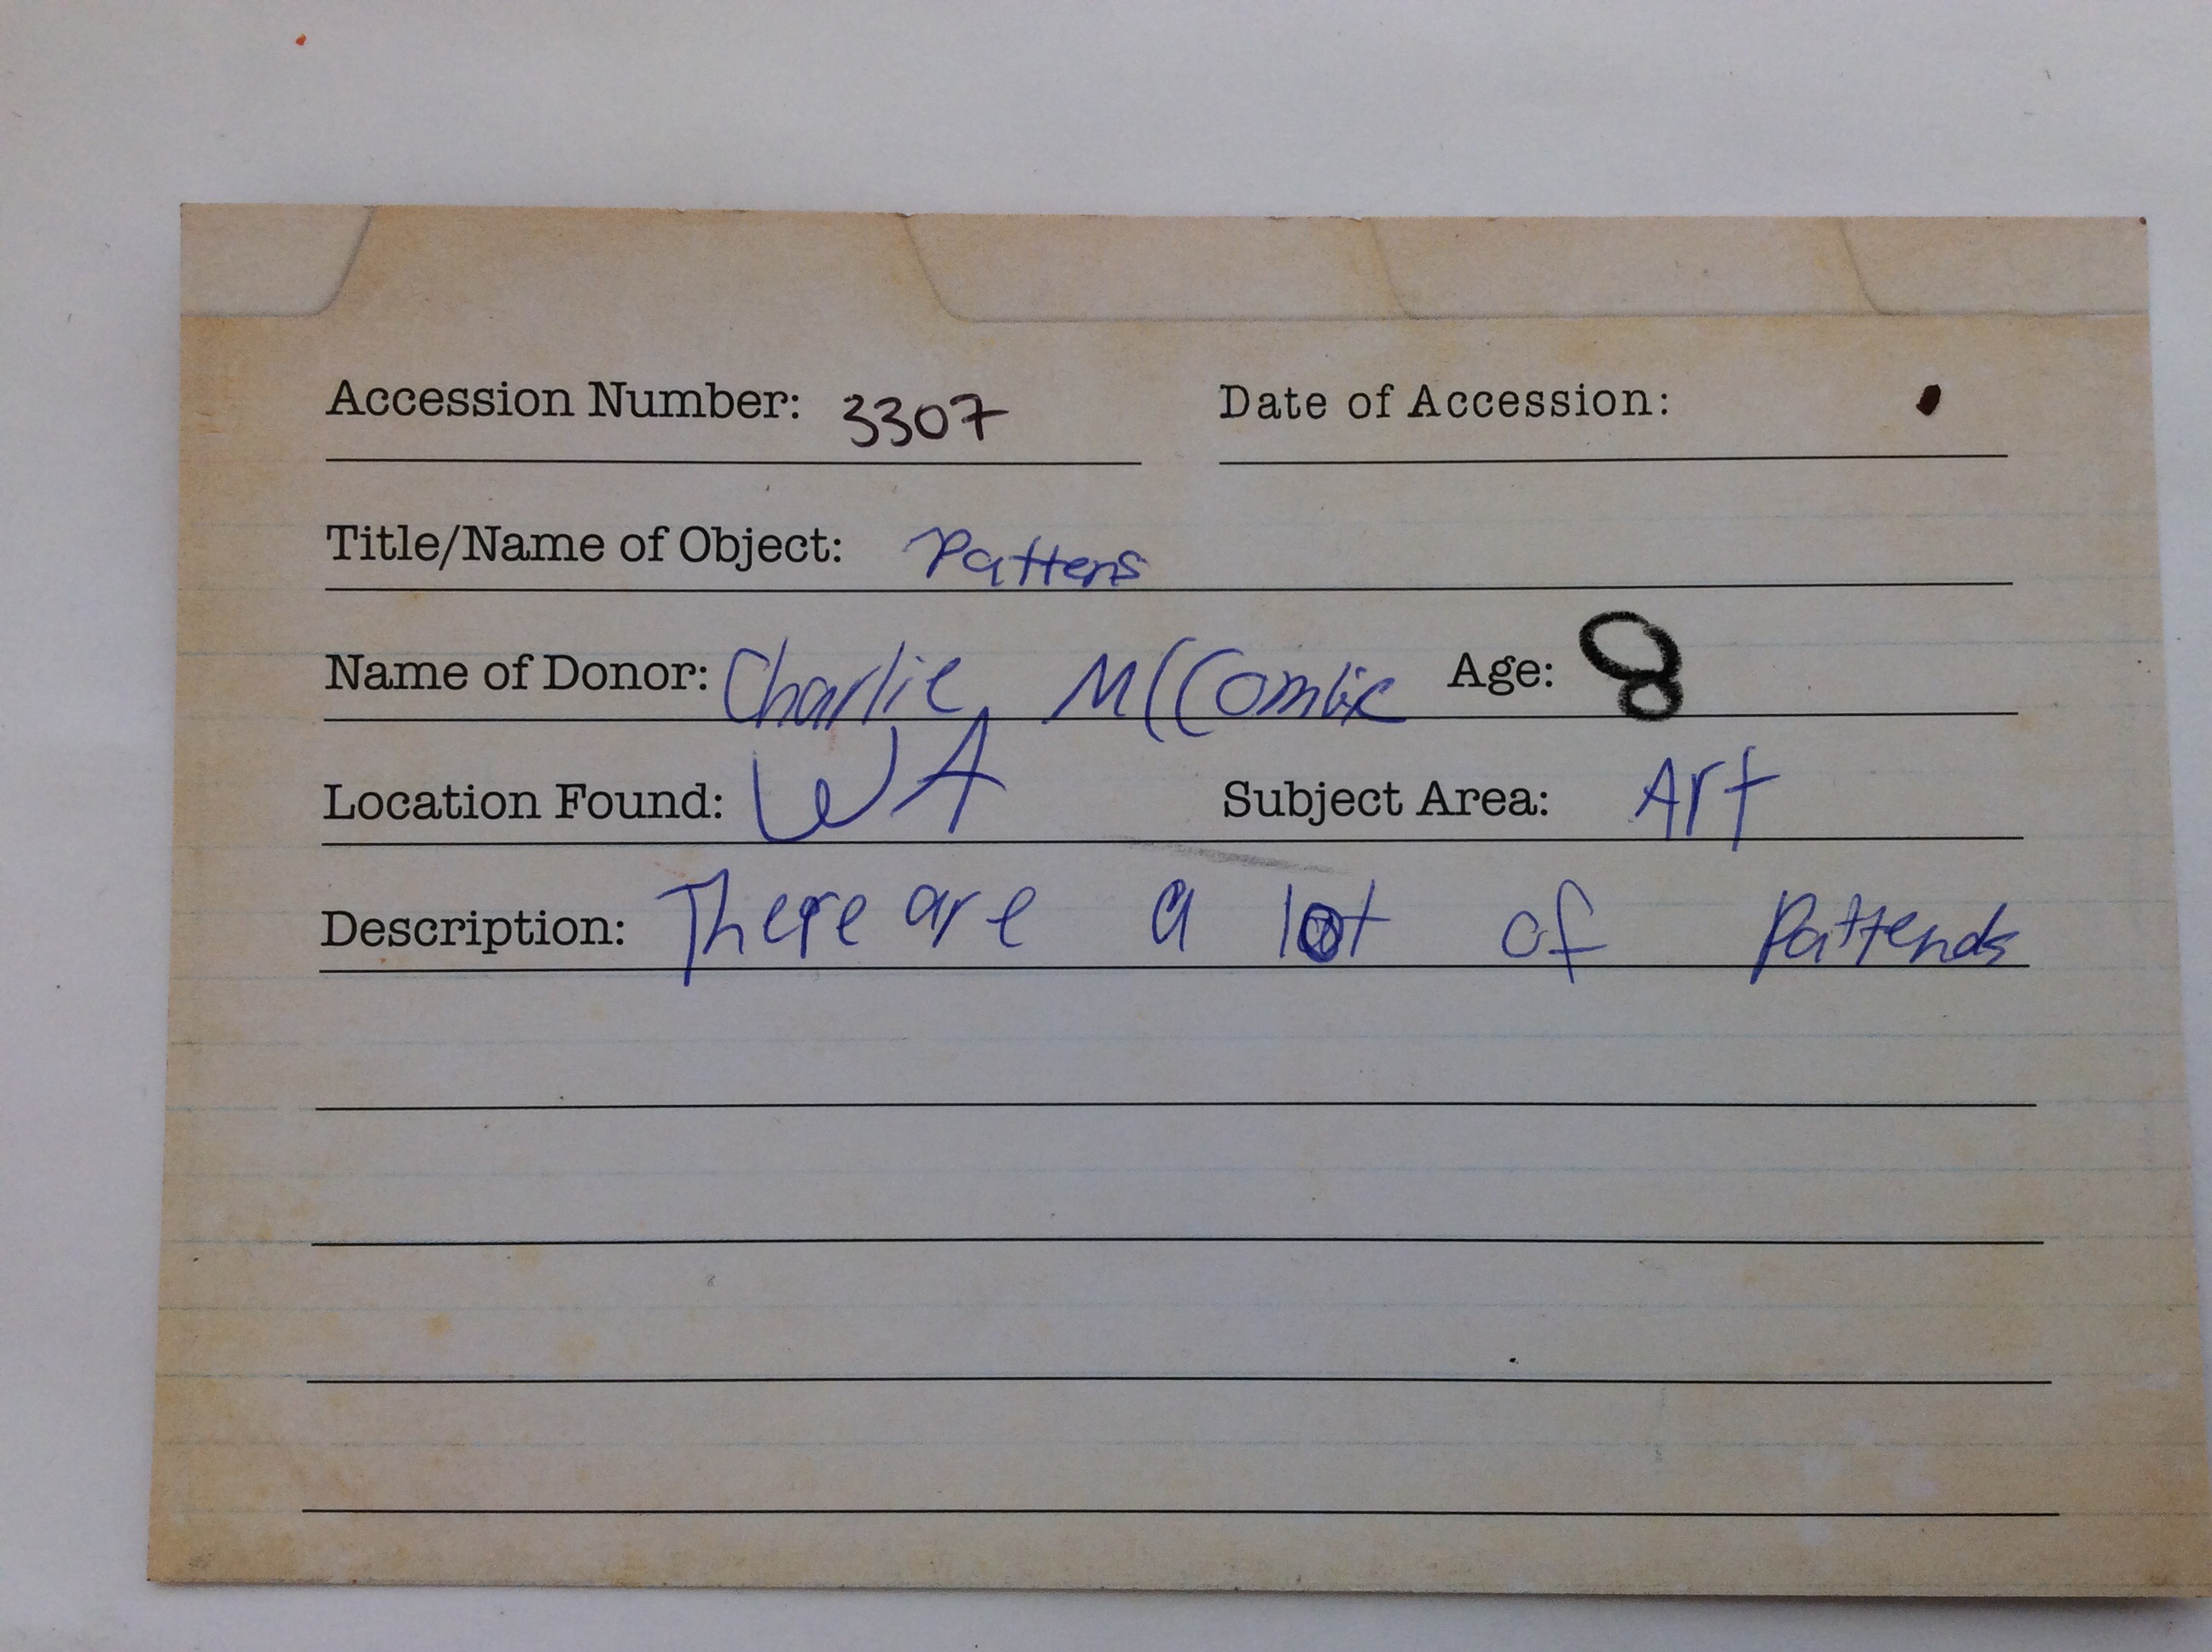 Accession Number: 3307 Date of Accession:
Title/Name of Object: Pattens
Name of Donor: Charlie McCombie Age: 8
Location Found: WA Subject Area: Art
Description: There are a lot of Pattends